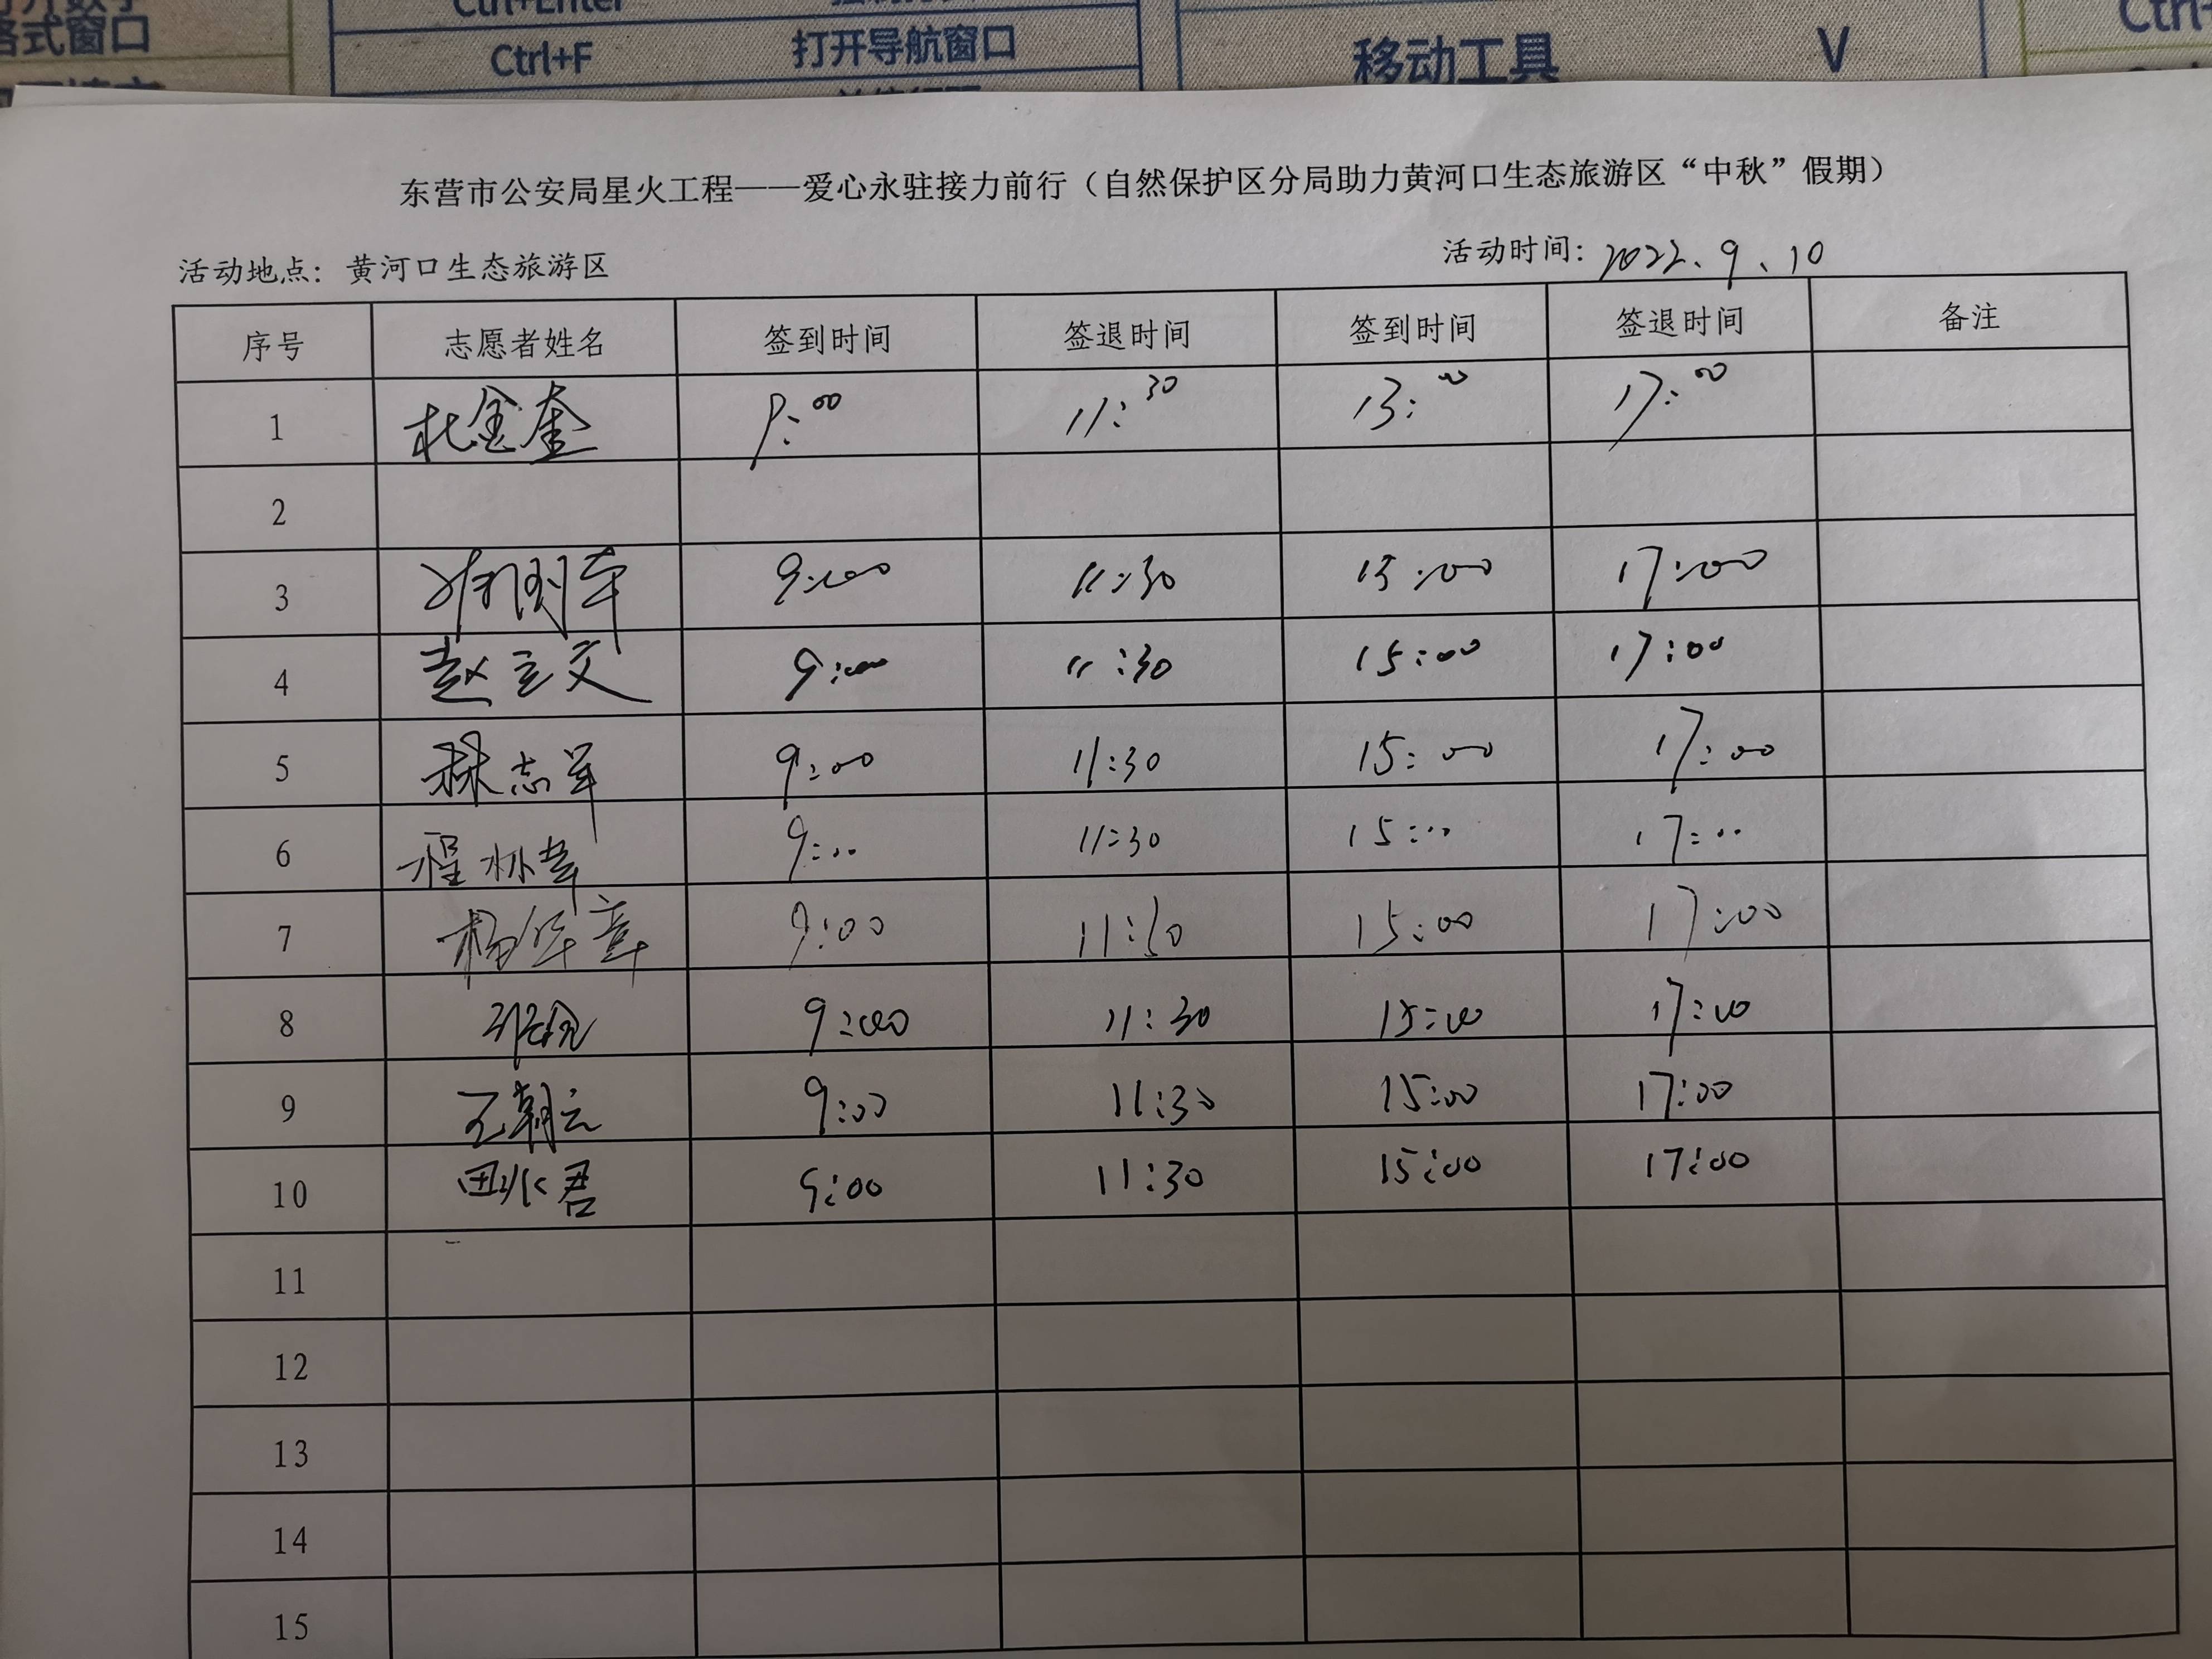 格式窗口
Ctrl+Enter
Ctrl+F 打开导航窗口 移动工具 V
东营市公安局星火工程——爱心永驻接力前行（自然保护区分局助力黄河口生态旅游区“中秋”假期）
活动地点：黄河口生态旅游区 活动时间：2022、9、10
序号 志愿者姓名 签到时间 签退时间 签到时间 签退时间 备注
1 杜金奎 9:00 11:30 13:00 17:00
2
3 9:00 11:30 15:00 17:00
4 赵立文 9:00 11:30 15:00 17:00
5 林志军 9:00 11:30 15:00 17:00
6 程林芸 9:00 11:30 15:00 17:00
7 11:30 15:00 17:00
8 9:00 11:30 15:00 17:00
9 王朝云 9:00 11:30 15:00 17:00
10 田水君 9:00 11:30 15:00 17:00
11
12
13
14
15